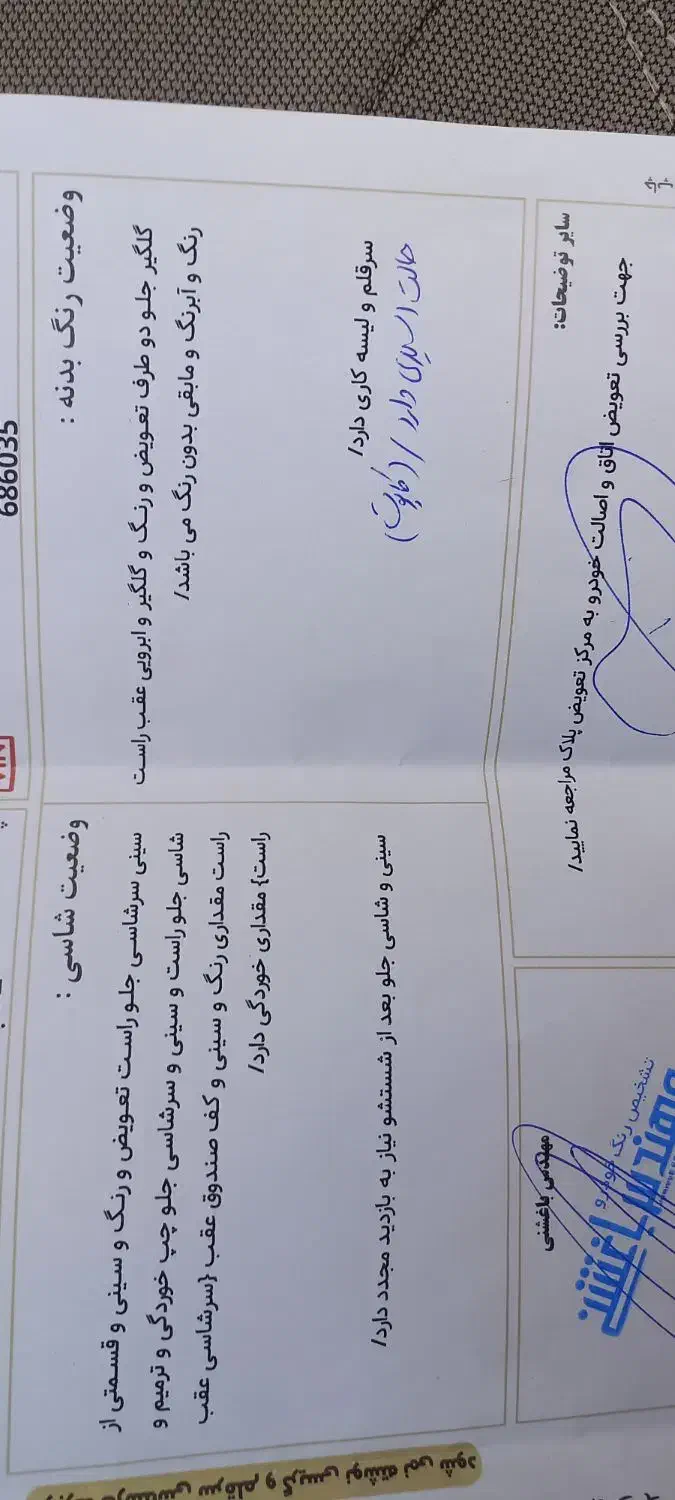 686035
وضعیت رنگ بدنه :
گلگیر جلو دو طرف تعویض و رنگ و گلگیر و ابرویی عقب راست
رنگ و آبرنگ و مابقی بدون رنگ می باشد/
سرقلم و لیسه کاری دارد/
حالت اسپری دارد / (کاپوت)
وضعیت شاسی :
سینی سرشاسی جلو راست تعویض و رنگ و سینی و قسمتی از
شاسی جلو راست و سینی و سرشاسی جلو چپ خوردگی و ترمیم و
راست مقداری رنگ و سینی و کف صندوق عقب {سرشاسی عقب
راست} مقداری خوردگی دارد/
سینی و شاسی جلو بعد از شستشو نیاز به بازدید مجدد دارد/
سایر توضیحات:
جهت بررسی تعویض اتاق و اصالت خودرو به مرکز تعویض پلاک مراجعه نمایید/
مهندس باغشنی
تشخیص رنگ خودرو
مهندس باغشنی
سرقلم و گریسی نوشته نمی شود